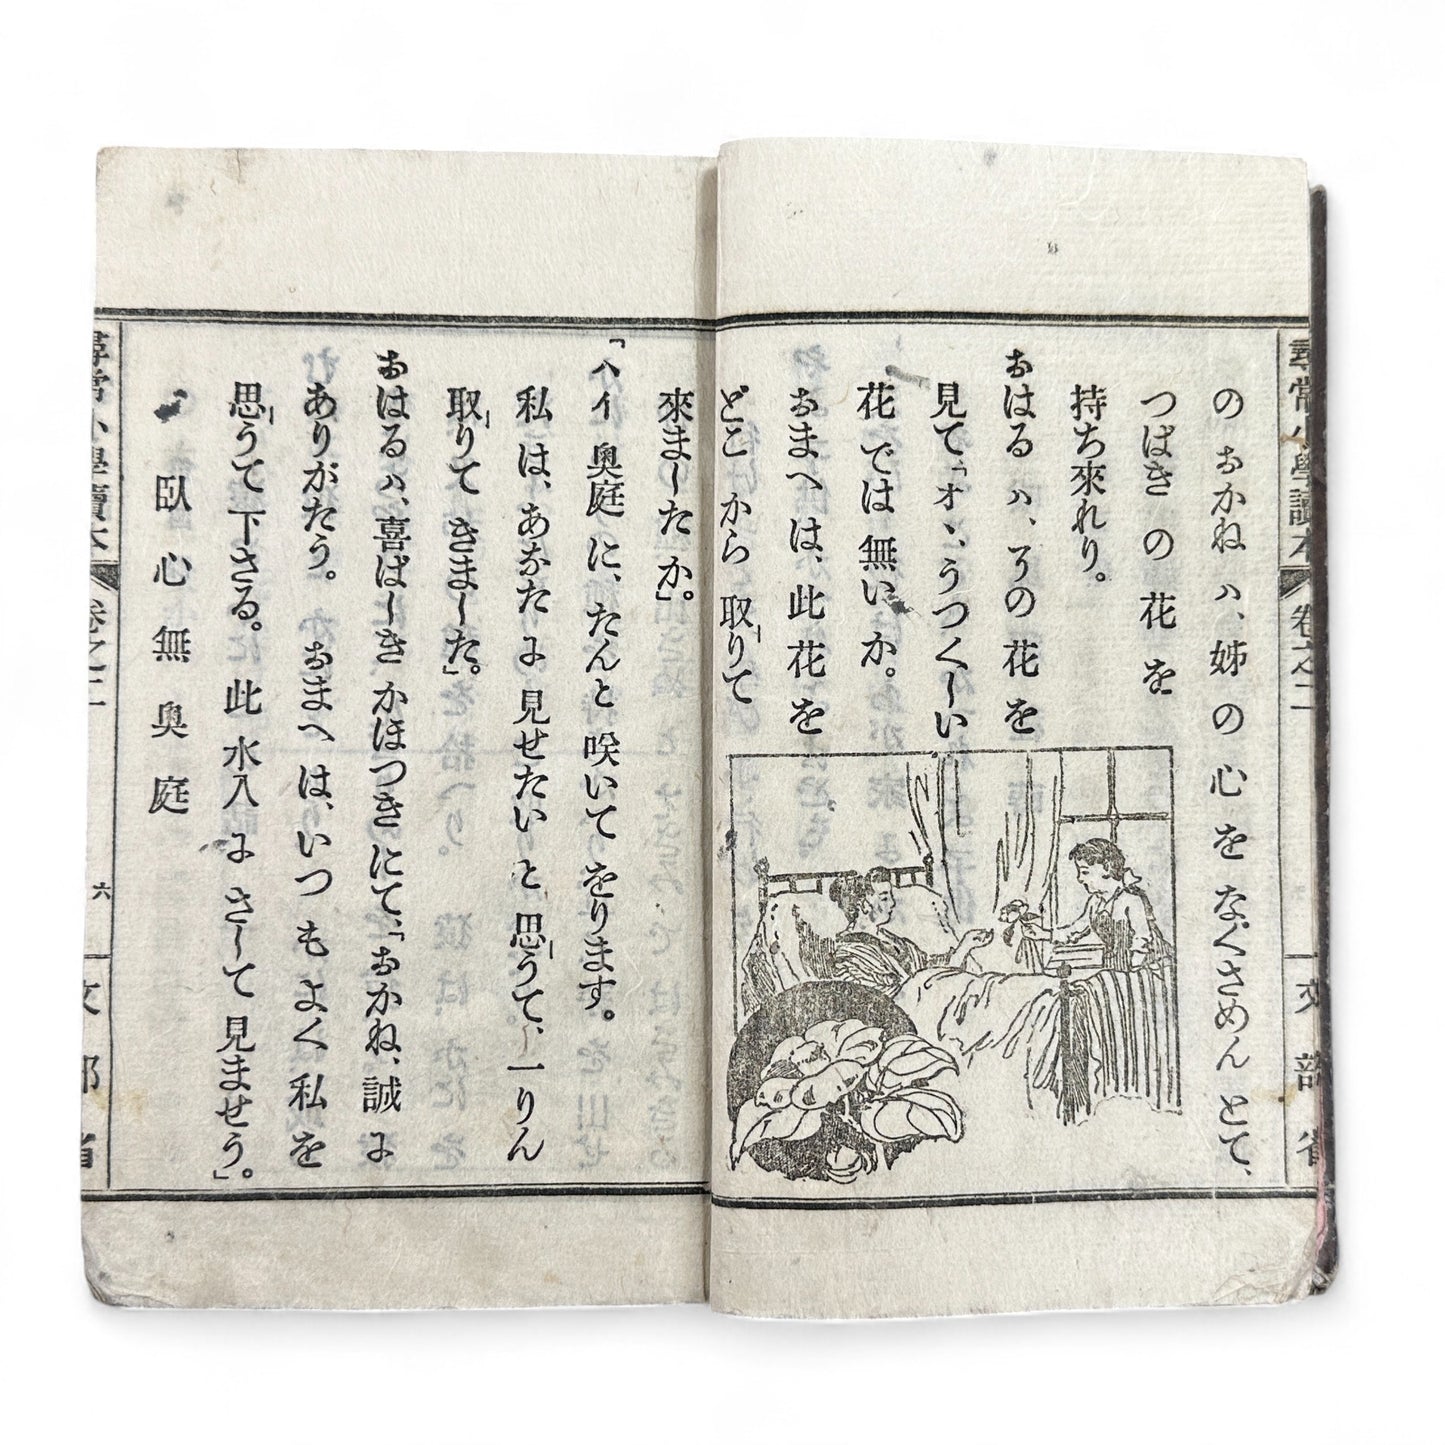 尋常小學讀本
卷之二
文部省
の おかね ハ、姊の心を なぐさめん とて、
つばき の 花 を
持ち 來れり。
おはる ハ、その 花 を
見て、「オヽ、うつくしい
花 では 無い か。
おまへ は、此 花 を
どこ から 取りて
來ました か。」
「ハイ 奥庭 に、たんと 咲いて をります。
私 は、あなた に 見せたい と 思うて、一りん
取りて きました。」
おはる ハ、喜ばしき かほつき にて、「おかね、誠 に
ありがたう。おまへ は、いつ も よく 私 を
思うて 下さる。此 水入 に さして 見ませう。」
臥 心 無 奥 庭
尋常小學讀本
卷之二
六
文部省